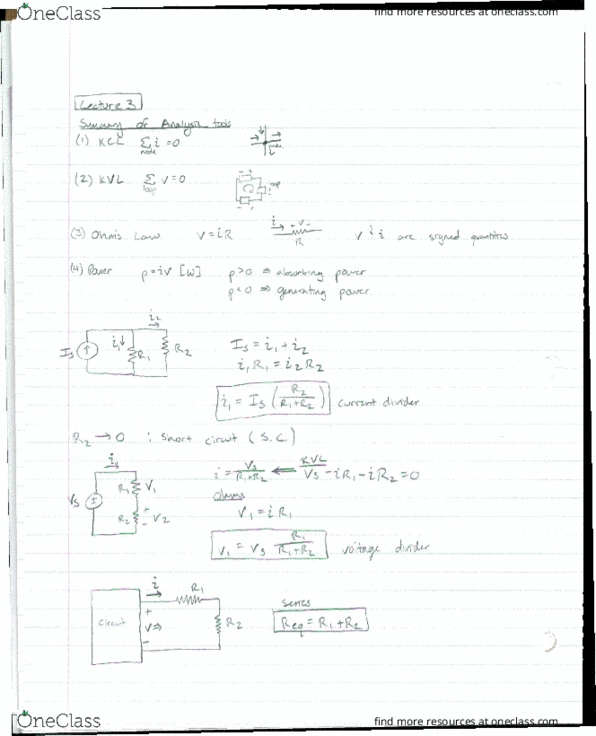 OneClass
find more resources at oneclass.com
Lecture 3
Summary of Analysis tools
(1) KCL Σ i = 0
node
i
(2) KVL Σ v = 0
loop
loop
(3) Ohms Law v = iR i + v - R v & i are signed quantities
(4) Power p = iv [W] p>0 ⇒ absorbing power
p<0 ⇒ generating power
i₂
Is i₁ R₁ R₂
Is = i₁ + i₂
i₁R₁ = i₂R₂
i₁ = Is (R₂/(R₁+R₂)) current divider
R₂ → 0 : Short circuit (S.C)
Vs R₁ V₁ R₂ + - V₂
i = Vs/(R₁+R₂) ⇐ KVL Vs - iR₁ - iR₂ = 0
Ohms
V₁ = iR₁
V₁ = Vs R₁/(R₁+R₂) voltage divider
circuit i R₁ + V⇒ - R₂
series
Req = R₁ + R₂
OneClass
find more resources at oneclass.com